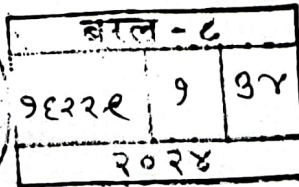 बरल - ८
१६२२९ १ ३४
२०२४